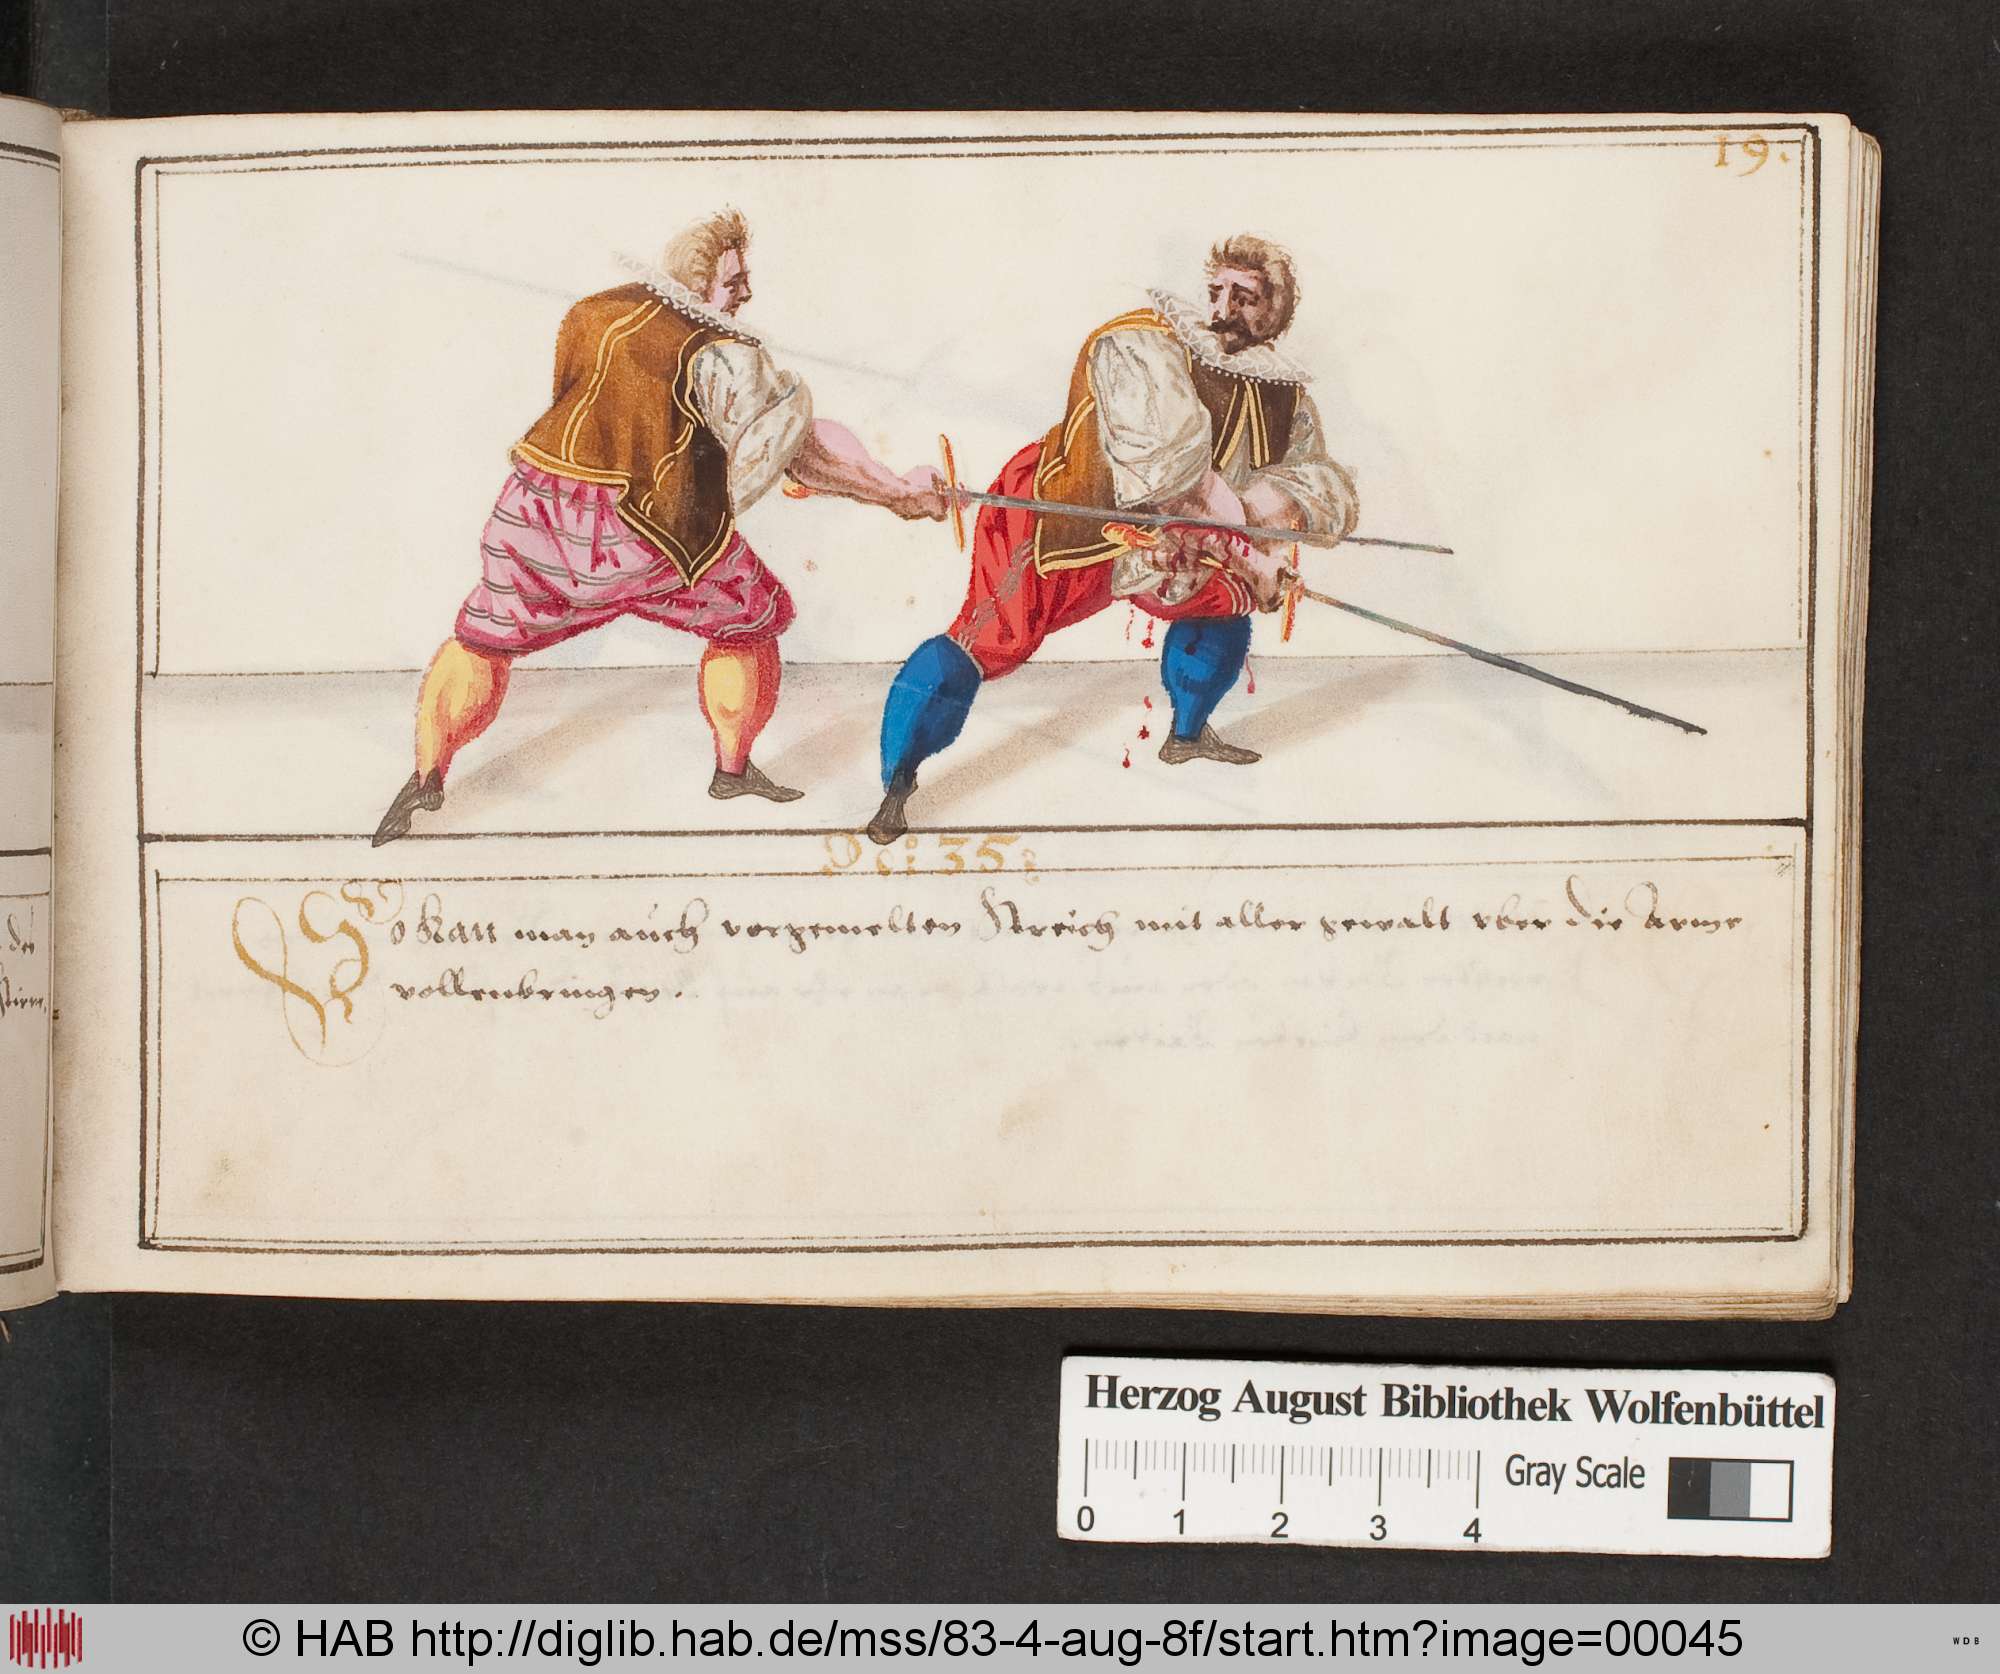 19.
No: 35.
So kan man auch vorgemelten Streich mit aller gewalt vber die Arme
vollenbringen.
der
Herzog August Bibliothek Wolfenbüttel
Gray Scale
0 1 2 3 4
© HAB http://diglib.hab.de/mss/83-4-aug-8f/start.htm?image=00045
WDB